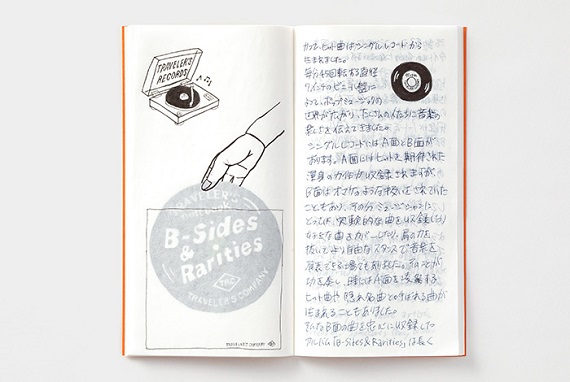 TRAVELER'S
RECORDS
TRAVELER'S
B-Sides
&
Rarities
TRC
TRAVELER'S COMPANY
TRAVELER'S COMPANY
かつて、ヒット曲はシングルレコードから
生まれました。
毎分45回転する直径
7インチのビニール盤に
よって、ポップミュージックの
世界が広がり、たくさんの人たちに音楽の
楽しさを伝えてきました。
シングルレコードにはA面とB面が
あります。A面にはヒットを期待された
渾身の力作が収録されますが、
B面はオマケのような扱いをされていた
こともあり、その分ミュージシャンに
とっては、実験的な曲を収録したり
な曲をカバーしたり、肩の力を
抜いてより自由なスタンスで音楽を
表現できる場でもありました。それが
功を奏し、時にはA面を凌駕する
ヒット曲や隠れ名曲と呼ばれる曲が
生まれることもありました。
そんなB面の曲を中心に収録した
アルバム「B-Sides & Rarities」は長く